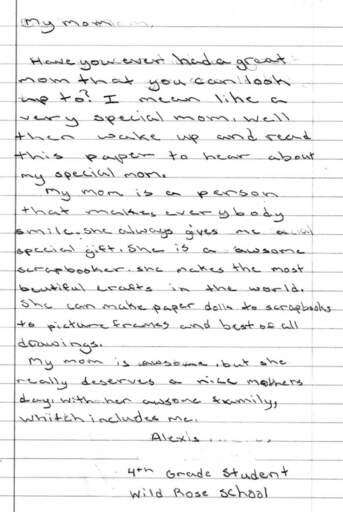 My mom
Have you ever had a great
mom that you can look
up to? I mean like a
very special mom. Well
then wake up and read
this paper to hear about
my special mom.
My mom is a person
that makes everybody
smile. She always gives me a
special gift. She is a awsome
scrapbooker. she makes the most
beutiful crafts in the world.
She can make paper dolls to scrapbooks
to picture frames and best of all
drawings.
My mom is awsome, but she
really deserves a nice mothers
day, with her awsome family,
whitch includes me.
Alexis
4th Grade Student
Wild Rose School